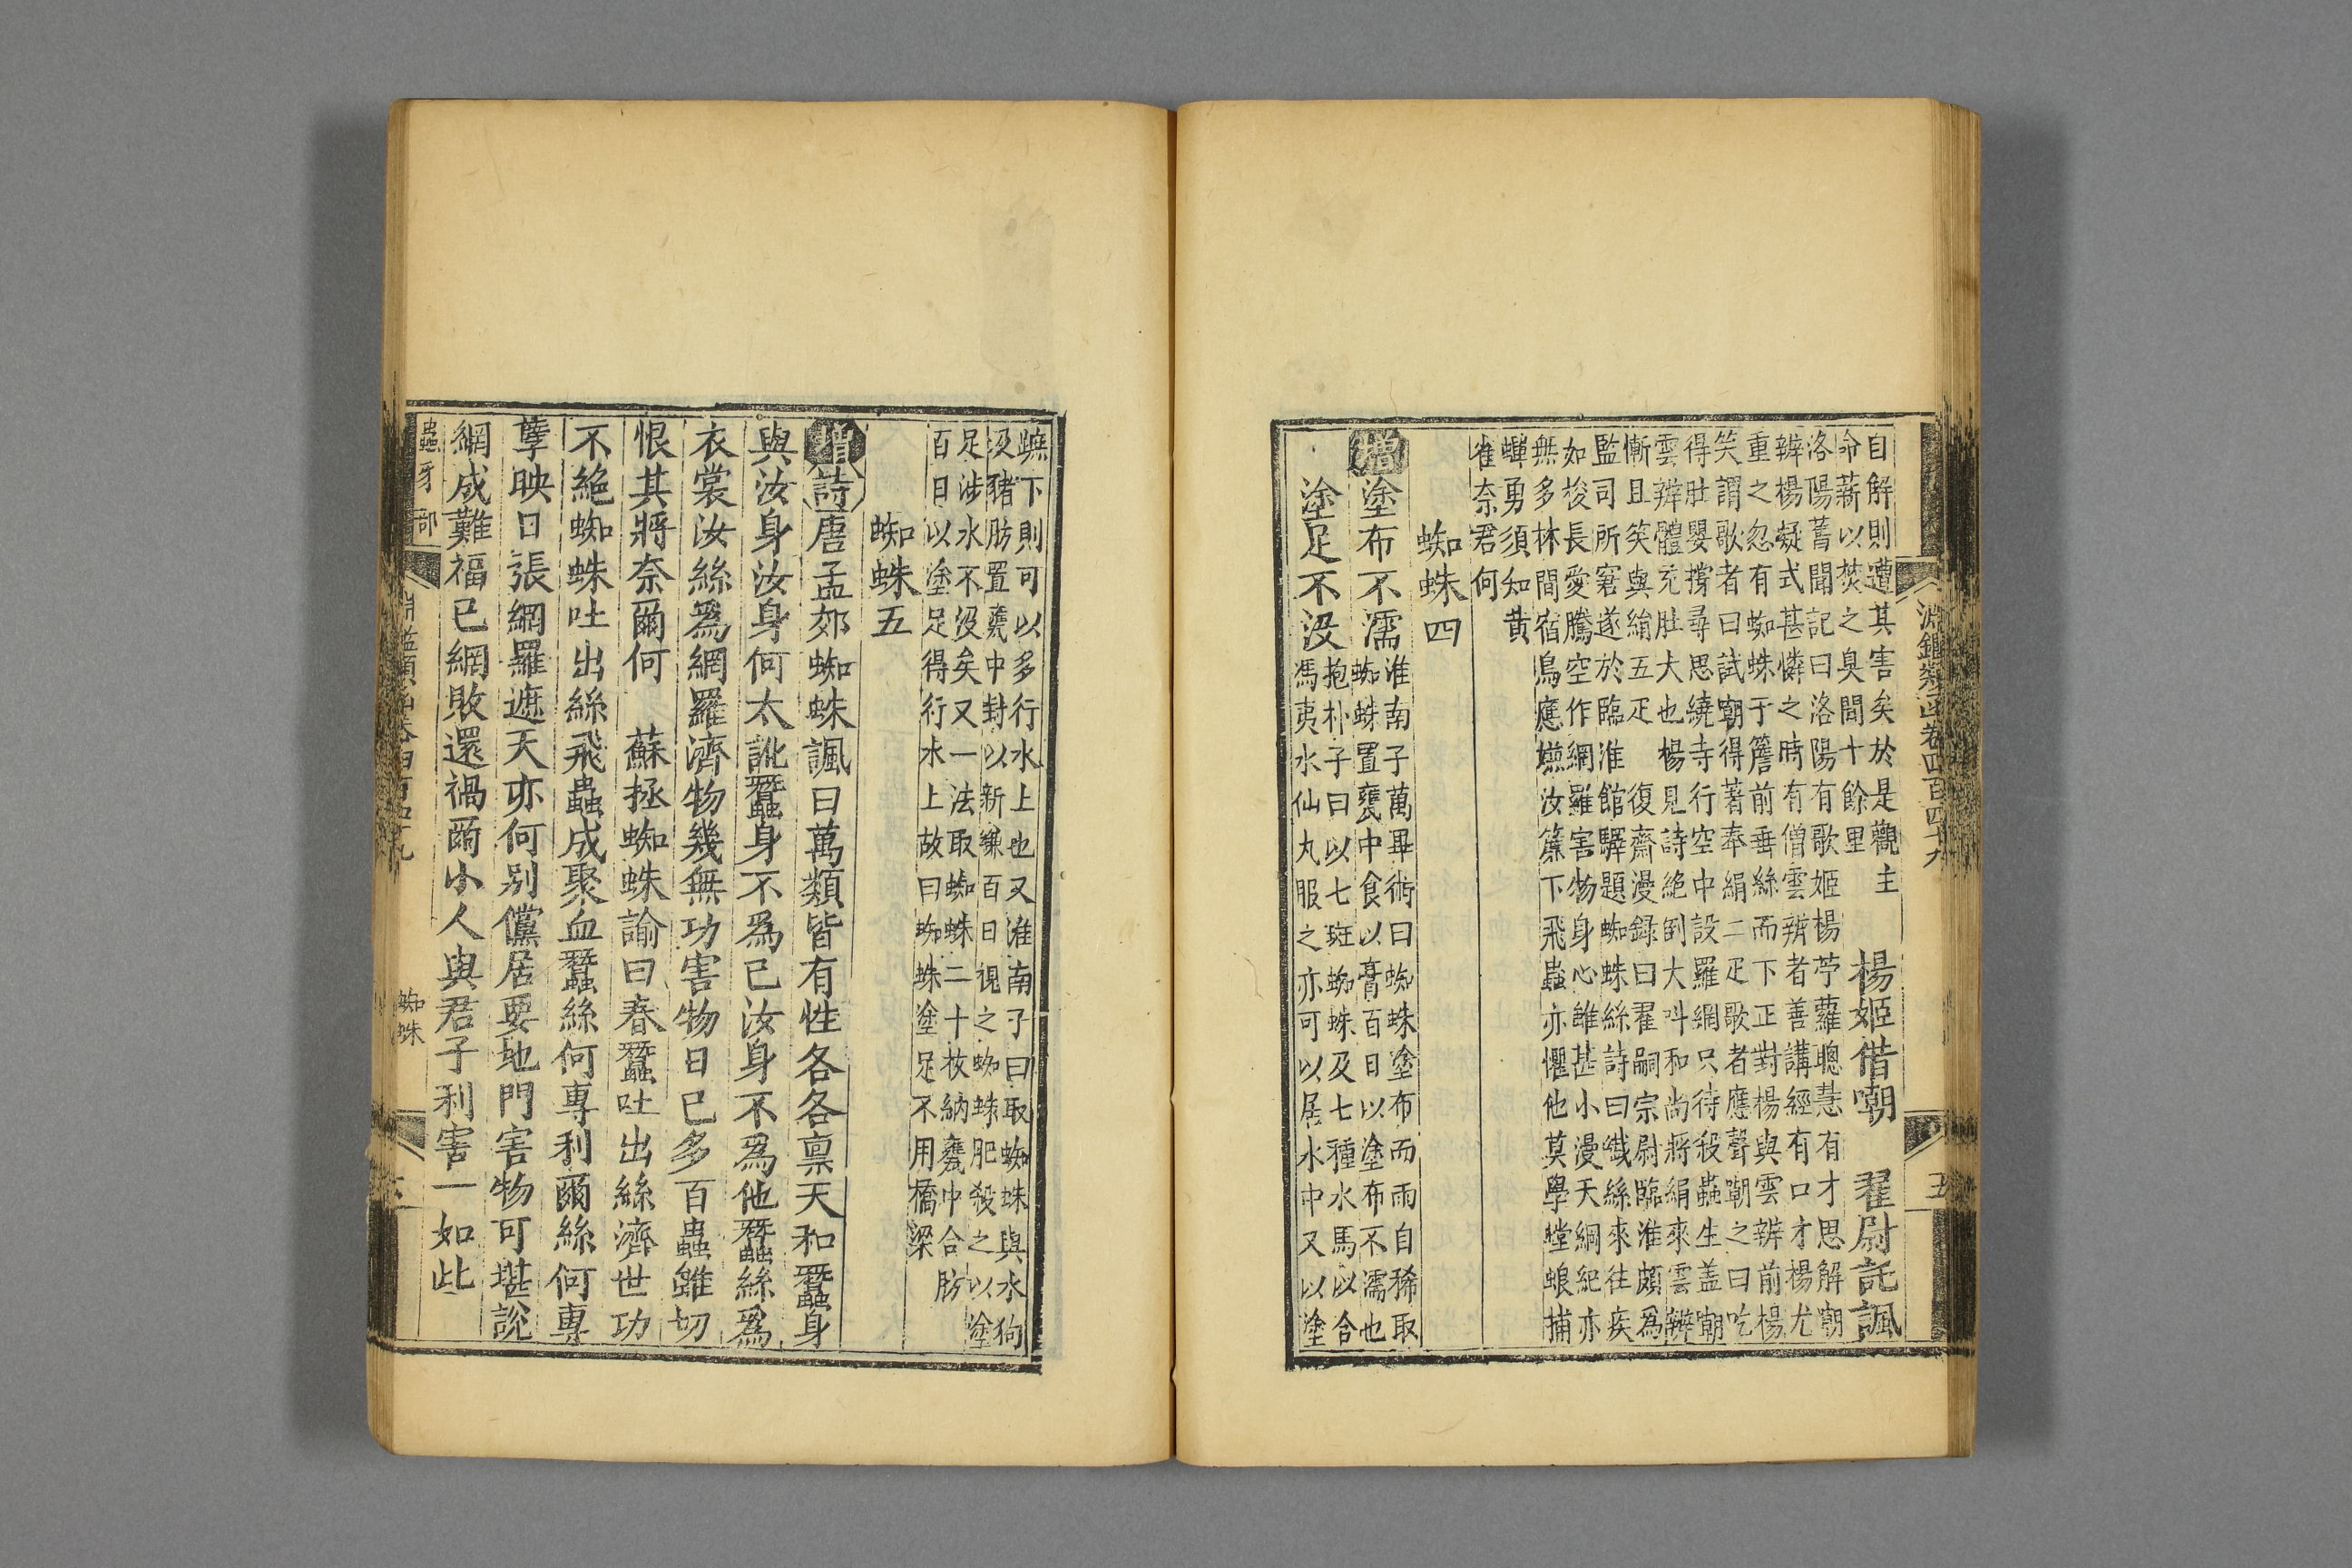 淵鑑類函卷四百四十九 五
自解則遭其害矣於是觀主
命薪以焚之臭聞十餘里
楊姬借嘲 翟尉託諷
洛陽舊聞記曰洛陽有歌姬楊苧蘿聰慧有才思解嘲
辨楊凝式甚憐之時有僧雲辨者善講經有口才楊尤
重之忽有蜘蛛于簷前垂絲而下正對楊與雲辨前楊
笑謂歌者曰試嘲得著奉絹二疋歌者應聲嘲之曰吃
得肚嬰撐尋思繞寺行空中設羅網只待殺蟲生盖嘲
雲辨體充肚大也楊見詩絶倒大呌和尚將絹來雲辨
慚且笑與絹五疋 復齋漫録曰翟嗣宗尉臨淮頗爲
監司所窘遂於臨淮館驛題蜘蛛絲詩曰織絲來往疾
如梭長愛騰空作網羅害物身心雖甚小漫天綱紀亦
無多林間宿鳥應嫌汝簾下飛蟲亦懼他莫學螳蜋捕
蟬勇須知黄
雀奈君何
蜘蛛四
增塗布不濡
淮南子萬畢術曰蜘蛛塗布而雨自稀取
蜘蛛置甕中食以膏百日以塗布不濡也
塗足不没
抱朴子曰以七斑蜘蛛及七種水馬以合
馮夷水仙丸服之亦可以居水中又以塗
蹠下則可以多行水上也又淮南子曰取蜘蛛與水狗
及猪肪置甕中封以新縑百日視之蜘蛛肥殺之以塗
足涉水不没矣又一法取蜘蛛二十枚納甕中合肪
百日以塗足得行水上故曰蜘蛛塗足不用橋梁
蜘蛛五
增詩唐孟郊蜘蛛諷曰萬類皆有性各各禀天和蠶身
與汝身汝身何太訛蠶身不爲已汝身不爲他蠶絲爲
衣裳汝絲爲網羅濟物幾無功害物日已多百蟲雖切
恨其將奈爾何 蘇拯蜘蛛諭曰春蠶吐出絲濟世功
不絶蜘蛛吐出絲飛蟲成聚血蠶絲何專利爾絲何專
孽映日張網羅遮天亦何别儻居要地門害物可堪說
網成難福已網敗還禍爾小人與君子利害一如此
蟲豸部
淵鑑類函卷四百四十九 蜘蛛